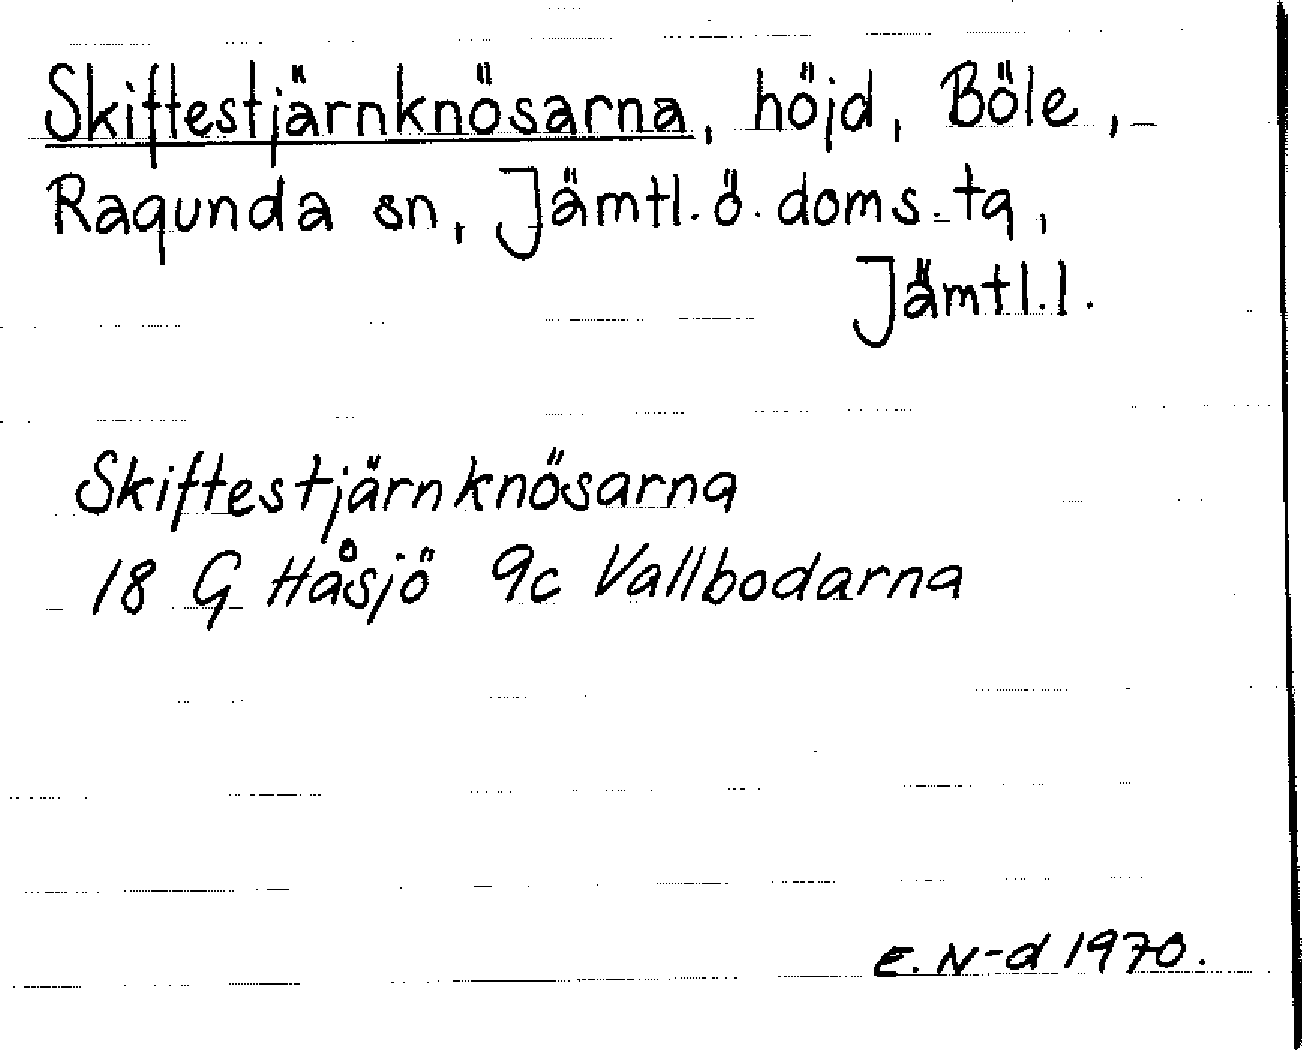 Skiftestjärnknösarna, höjd, Böle,
Ragunda sn, Jämtl. ö. doms. tg,
Jämtl. l.
Skiftestjärnknösarna
18 G Håsjö 9c Vallbodarna
E. N-d 1970.